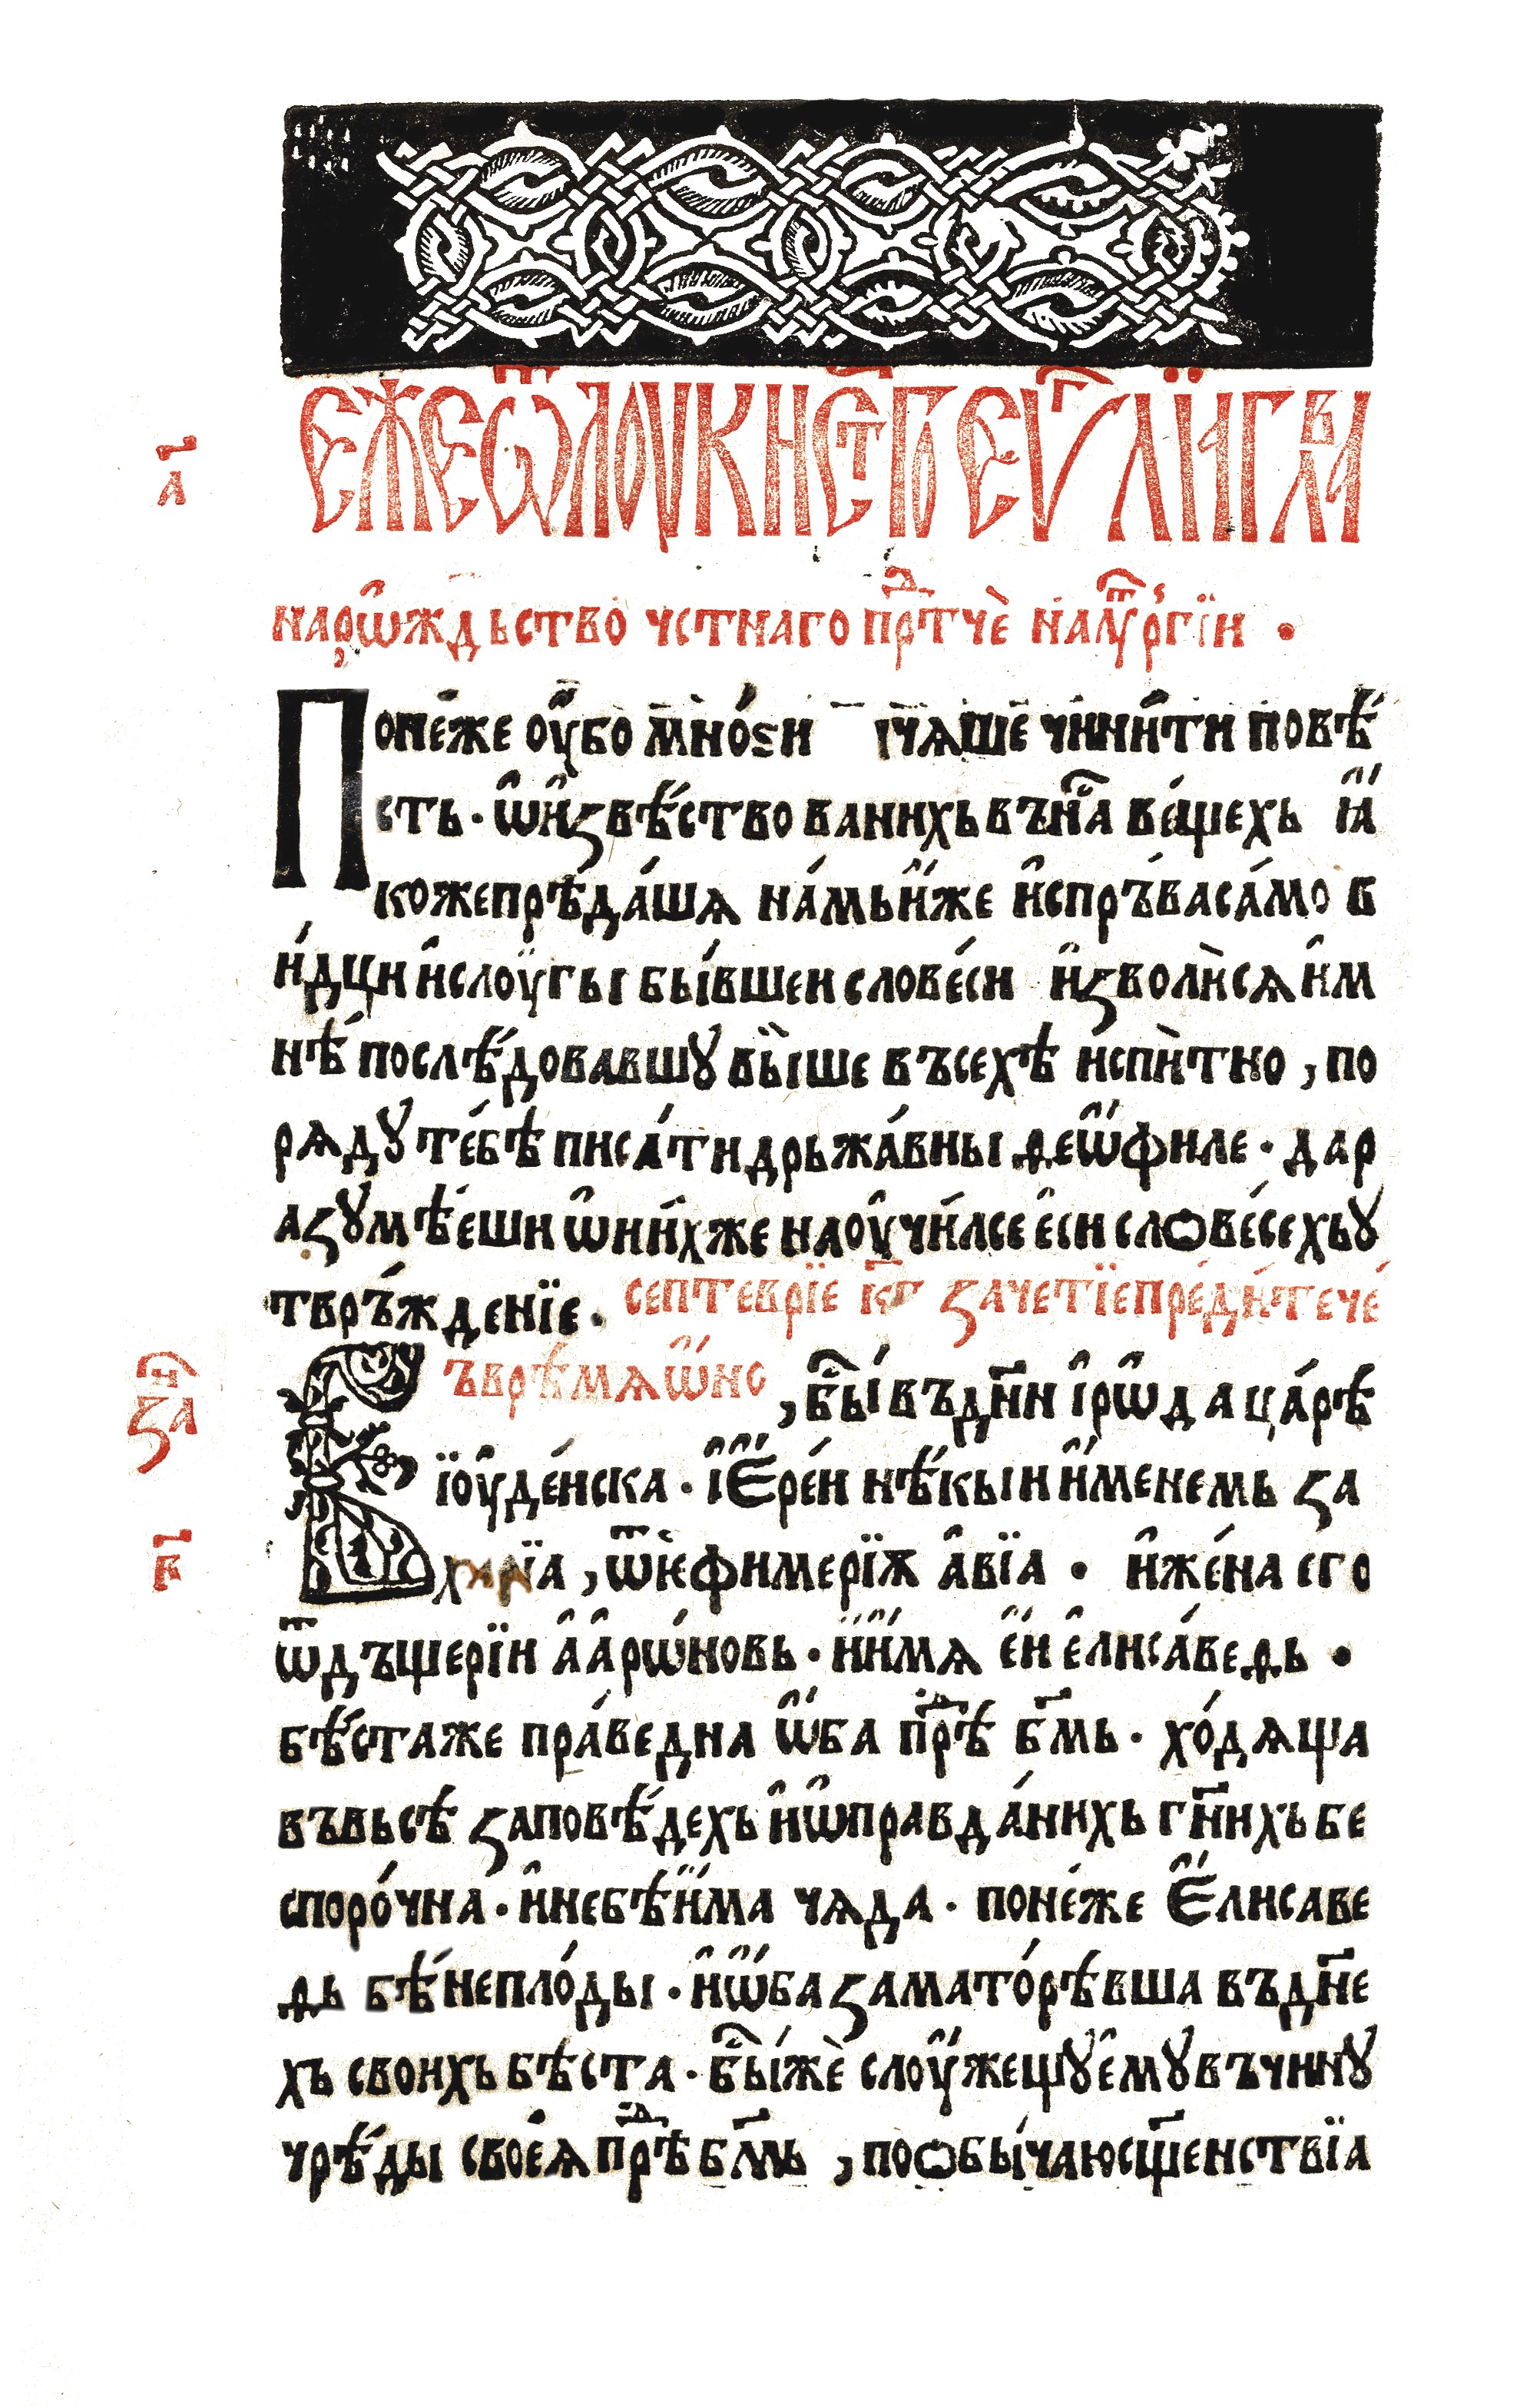 ЕЖЕ Ѿ ЛОУКИ С͠ТОЕ ЕѴ҃ЛІЕ ГЛАВА
а҃
на рѡ̑ждьство чстнаго пр҃ⷣтчѐ на лꙋ҃рⷮгїи ·
Поне́же оу̑бо мно́ѕи їчѧше чини̑ти повѣ́
сть · ѡ̑и̑ꙁвѣ́ство ванихь въ на҃с ве́щехь ꙗ҆́
коже прѣда́шѧ на́мь и҆́же и̑спръ́ва само в
и́дци и̑слоу̑гы бы́вшеи слове́си и̑ꙁволѝсѧ и̑м
нѣ́ послѣ́довавшꙋ вы̀ше въсехѣ испѝтно , по
рѧдꙋ те́бѣ писа́ти дрьжа́вны ѳеѡ̑́филе · да р
аꙁꙋмѣ́еши ѡ̑ни́хже наоу̑чи́лсе е̑си слѻве́сехь ꙋ
твръ́жденїе · септеврїе к҃г ꙁачетїе пре́ди́тече́
ъ врѣ́мѧ ѡ̑но , бы҃́ въ дн҃и і̑рѡ̑да ца́рѣ
ꙁаⷱ҇
їоу̑де́иска · і̑е̑ре́и нѣ́кыи и̑́менемь ꙁа
в҃
харїа , ѿ е̑фимерїѫ а̑вїа · и̑же́на его
ѿ дъщерїи а̑а̑рѡ́новь · и҆́и҆́мѧ е҆́и е̑лиса́веѳь ·
бѣ́стаже пра́ведна ѡ̑́ба прⷣѣ́ б҃мь · хо́дѧща
въ вьсѣ́ ꙁаповѣ́дехь и̑ѡ̑правда́нихь гн҃ихь бе
споро́чна · и̑не бѣ́ и̑́ма чѧда · поне́же Е̑́лисаве
ѳь бѣ́ непло́ды · и̑ѡ̑́ба ꙁамато́рѣвша въ дн҃е
хъ своихь бѣста · бы҃́жѐ слоу̑́жещꙋ е̑мꙋ въ чинꙋ
чрѣ́ды свое́ѧ прⷣѣ б҃мь , по ѻбы́чаю сщ҃енствїа